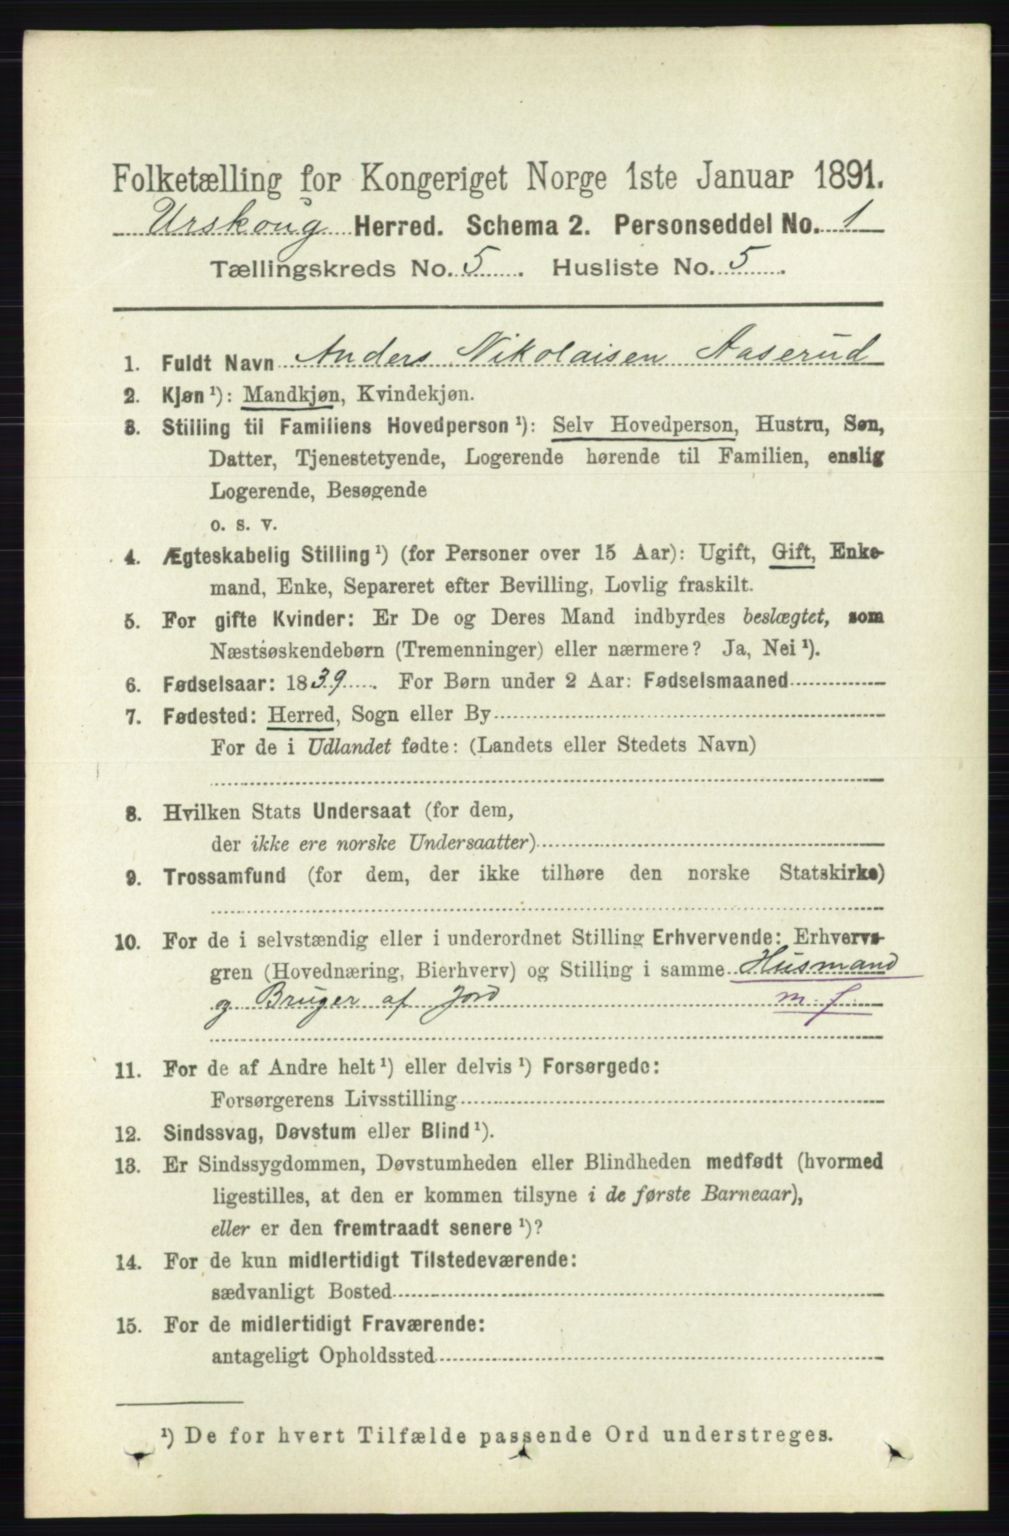 Folketælling for Kongeriget Norge 1ste Januar 1891.
Urskoug Herred. Schema 2. Personseddel No. 1
Tællingskreds No. 5. Husliste No. 5.
1. Fuldt Navn Anders Nikolaisen Aaserud
2. Kjøn ¹): Mandkjøn, Kvindekjøn.
3. Stilling til Familiens Hovedperson ¹): Selv Hovedperson, Hustru, Søn,
Datter, Tjenestetyende, Logerende hørende til Familien, enslig
Logerende, Besøgende
o. s. v.
4. Ægteskabelig Stilling ¹) (for Personer over 15 Aar): Ugift, Gift, Enke-
mand, Enke, Separeret efter Bevilling, Lovlig fraskilt.
5. For gifte Kvinder: Er De og Deres Mand indbyrdes beslægtet, som
Næstsøskendebørn (Tremenninger) eller nærmere? Ja, Nei ¹).
6. Fødselsaar: 1839. For Børn under 2 Aar: Fødselsmaaned
7. Fødested: Herred, Sogn eller By
For de i Udlandet fødte: (Landets eller Stedets Navn)
8. Hvilken Stats Undersaat (for dem,
der ikke ere norske Undersaatter)
9. Trossamfund (for dem, der ikke tilhøre den norske Statskirke)
10. For de i selvstændig eller i underordnet Stilling Erhvervende: Erhvervs-
gren (Hovednæring, Bierhverv) og Stilling i samme Husmand
og Bruger af Jord m. J.
11. For de af Andre helt ¹) eller delvis ¹) Forsørgede:
Forsørgerens Livsstilling
12. Sindssvag, Døvstum eller Blind ¹).
13. Er Sindssygdommen, Døvstumheden eller Blindheden medfødt (hvormed
ligestilles, at den er kommen tilsyne i de første Barneaar),
eller er den fremtraadt senere ¹)?
14. For de kun midlertidigt Tilstedeværende:
sædvanligt Bosted
15. For de midlertidigt Fraværende:
antageligt Opholdssted
¹) De for hvert Tilfælde passende Ord understreges.